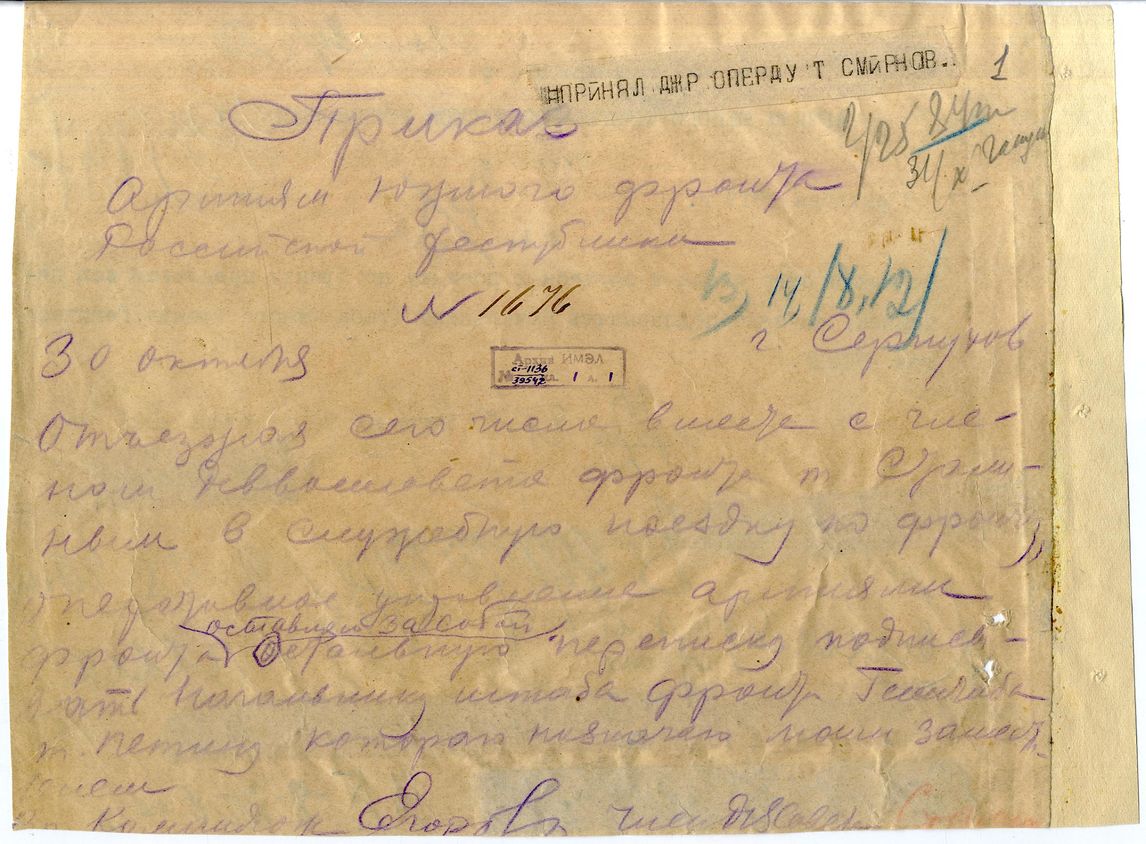 ПРИНЯЛ ДЖР ОПЕРДУ Т СМИРНОВ.
1
Приказ
2/25
31/X
Армиям южного фронта
Российской республики
№ 1676
14/8,12/
30 октября
г. Серпухов
Архив ИМЭЛ
ст-1136
39542
1 л. 1
Отъезжая сего числа вместе с чле-
ном Реввоенсовета фронта т Стали-
ным в служебную поездку по фронту,
оперативное управление армиями
оставляю за собой
фронта Остальную переписку подписы-
вать Начальнику штаба фронта Генштаба
т. Петину которого назначаю моим замест.
Командюж Егоров член РВСовета